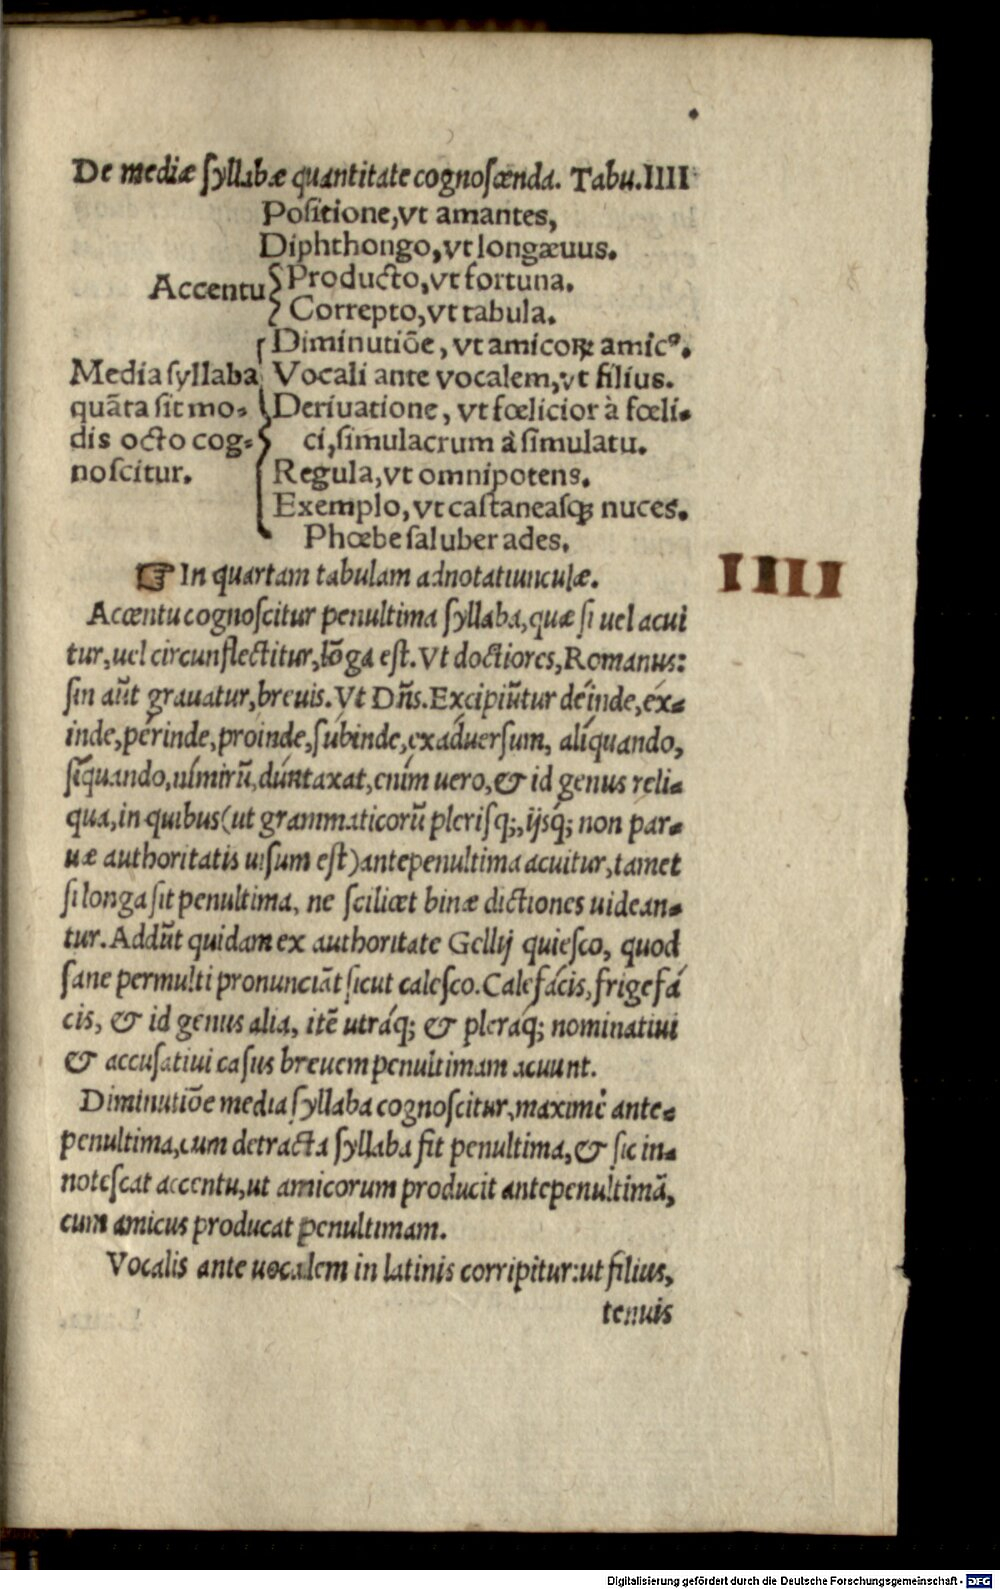 De mediæ ſyllabæ quantitate cognoſcenda. Tabu.IIII
Poſitione,vt amantes,
Diphthongo,vt longæuus.
Accentu Producto,vt fortuna.
Correpto,vt tabula.
Diminutiõe, vt amicoꝝ amicꝰ.
Media ſyllaba Vocali ante vocalem,vt filius.
quãta ſit mo- Deriuatione, vt fœlicior à fœli-
dis octo cog- ci,ſimulacrum à ſimulatu.
noſcitur. Regula,vt omnipotens.
Exemplo, vt caſtaneaſqꝫ nuces.
Phœbe ſaluber ades.
☞ In quartam tabulam adnotatiunculæ.
IIII
Accentu cognoſcitur penultima ſyllaba, quæ ſi uel acui
tur, uel circunflectitur, lõga eſt. Vt doctiores, Romanus:
ſin aũt grauatur, breuis. Vt Dñs. Excipiũtur déinde, éx-
inde, périnde, próinde, ſúbinde, exáduerſum, alíquando,
ſíquando, nímirũ, dúntaxat, ením uero, & id genus reli-
qua, in quibus (ut grammaticorũ pleriſq;, ijsq́; non par-
uæ authoritatis uiſum eſt) antepenultima acuitur, tamet
ſi longa ſit penultima, ne ſcilicet binæ dictiones uidean-
tur. Addũt quidam ex authoritate Gellij quieſco, quod
ſane permulti pronunciãt ſicut caleſco. Calefácis, frigefá
cis, & id genus alia, itẽ utráq; & pleráq; nominatiui
& accuſatiui caſus breuem penultimam acuunt.
Diminutiõe media ſyllaba cognoſcitur, maximè ante-
penultima, cum detracta ſyllaba fit penultima, & ſic in-
noteſcat accentu, ut amicorum producit antepenultimã,
cum amicus producat penultimam.
Vocalis ante uocalem in latinis corripitur: ut filius,
tenuis
Digitalisierung gefördert durch die Deutsche Forschungsgemeinschaft - DFG